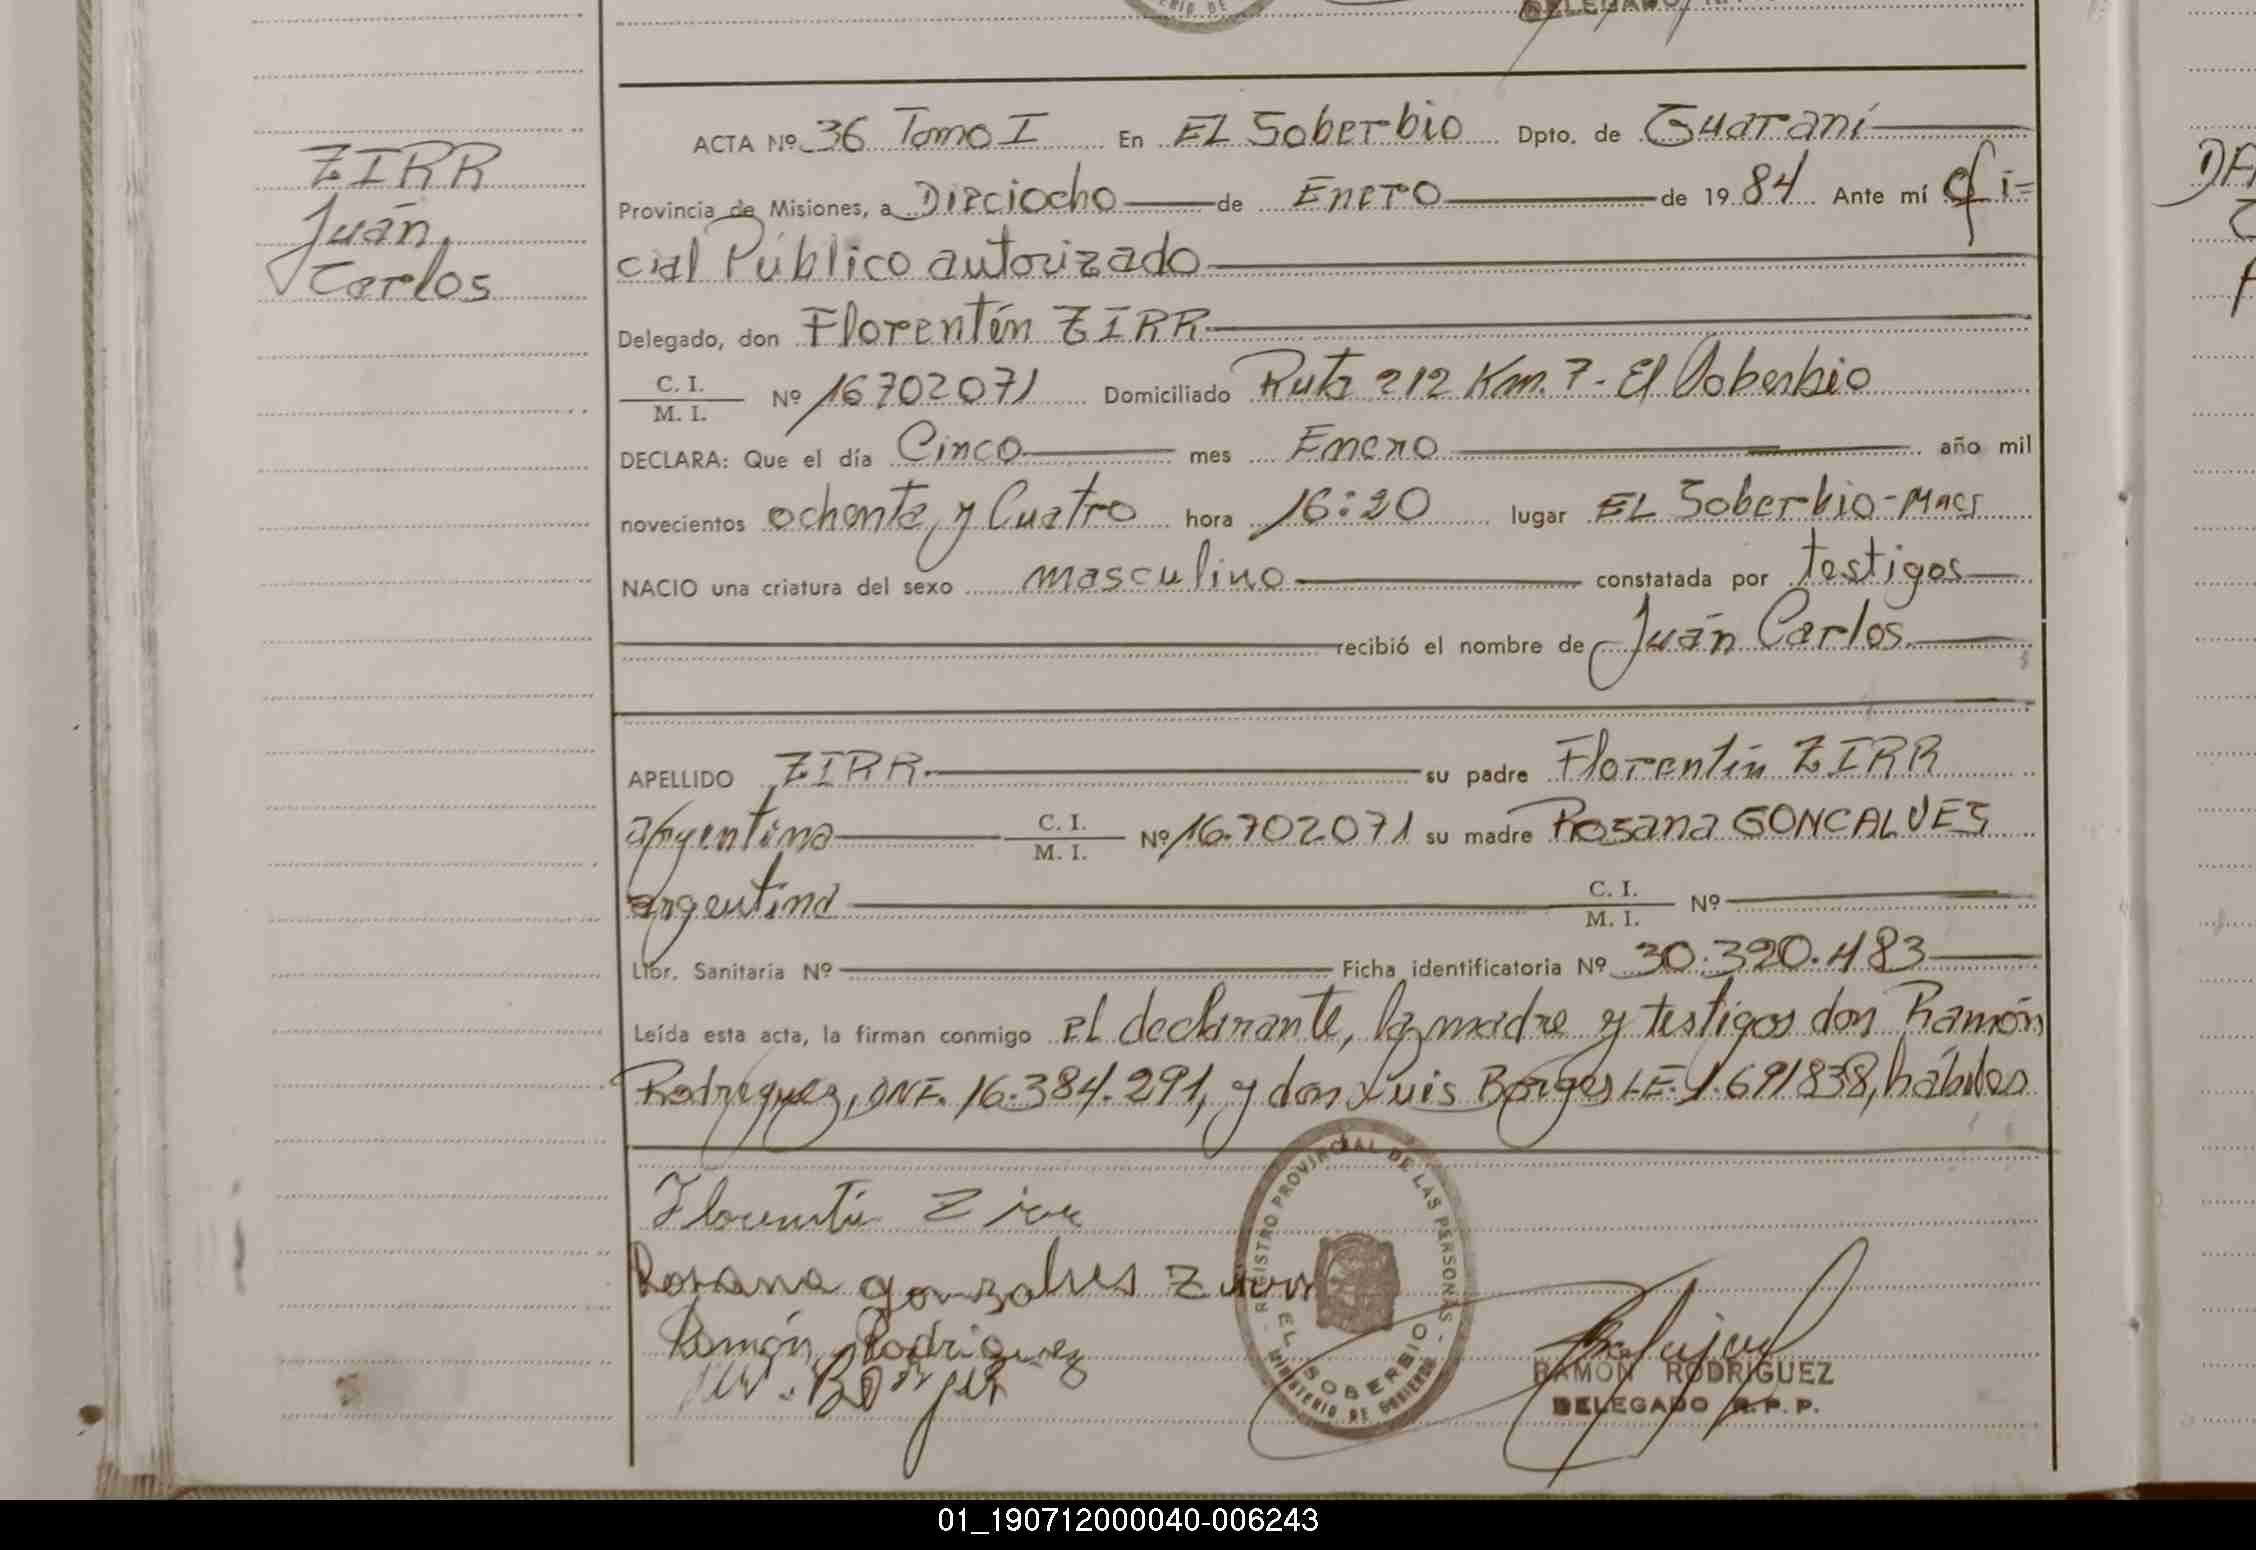 ZIRR
Juan
Carlos
ACTA Nº 36 Tomo I En EL Soberbio Dpto. de Guaraní
Provincia de Misiones, a Dieciocho de Enero de 1984 Ante mí Ofi=
cial Público autorizado
Delegado, don Florentín ZIRR
C. I.
M. I.
Nº 16702071 Domiciliado Ruta 212 Km. 7- El Soberbio
DECLARA: Que el día Cinco mes Enero año mil
novecientos ochenta y Cuatro hora 16:20 lugar EL Soberbio-Mnes
NACIO una criatura del sexo masculino constatada por testigos
recibió el nombre de Juan Carlos
APELLIDO ZIRR su padre Florentín ZIRR
argentino C. I. M. I. Nº 16.702071 su madre Rosana GONCALVES
argentina C. I. M. I. Nº
Libr. Sanitaria Nº Ficha identificatoria Nº 30.320.483
Leída esta acta, la firman conmigo el declarante, la madre y testigos don Ramón
Rodríguez, DNI. 16.384.291, y don Luis Borges LE. 1.691838, hábiles
Florentín Zirr
Rosana gonzalves Zirr
Ramón Rodríguez
Borges
REGISTRO PROVINCIAL DE LAS PERSONAS
EL SOBERBIO
MINISTERIO DE GOBIERNO
RAMON RODRIGUEZ
DELEGADO R. P. P.
01_190712000040-006243